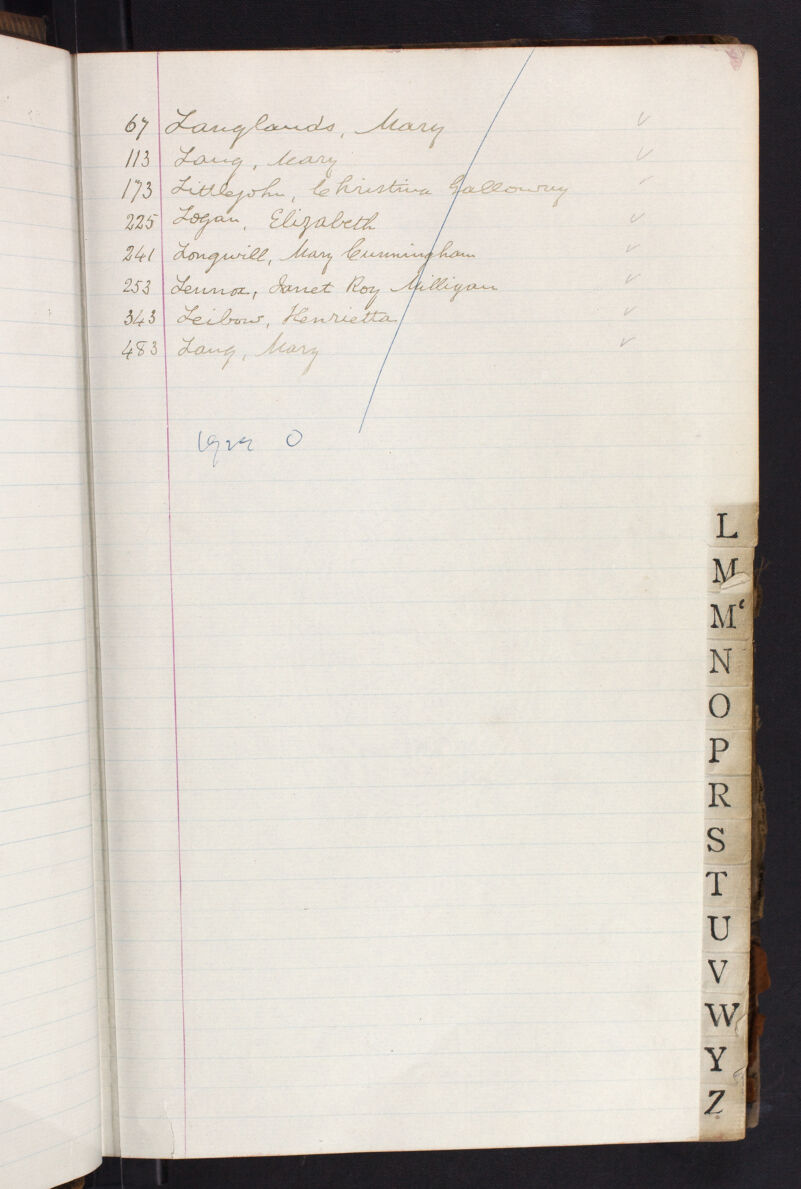 67 Langlands, Mary ✓
113 Lang, Mary ✓
173 Littlejohn, Christina Galloway ✓
225 Logan, Elizabeth ✓
241 Longwill, Mary Cunningham ✓
253 Lennox, Janet Roy Milligan ✓
343 Leibow, Henrietta ✓
483 Lang, Mary ✓
O
L
M
Mc
N
O
P
R
S
T
U
V
W
Y
Z